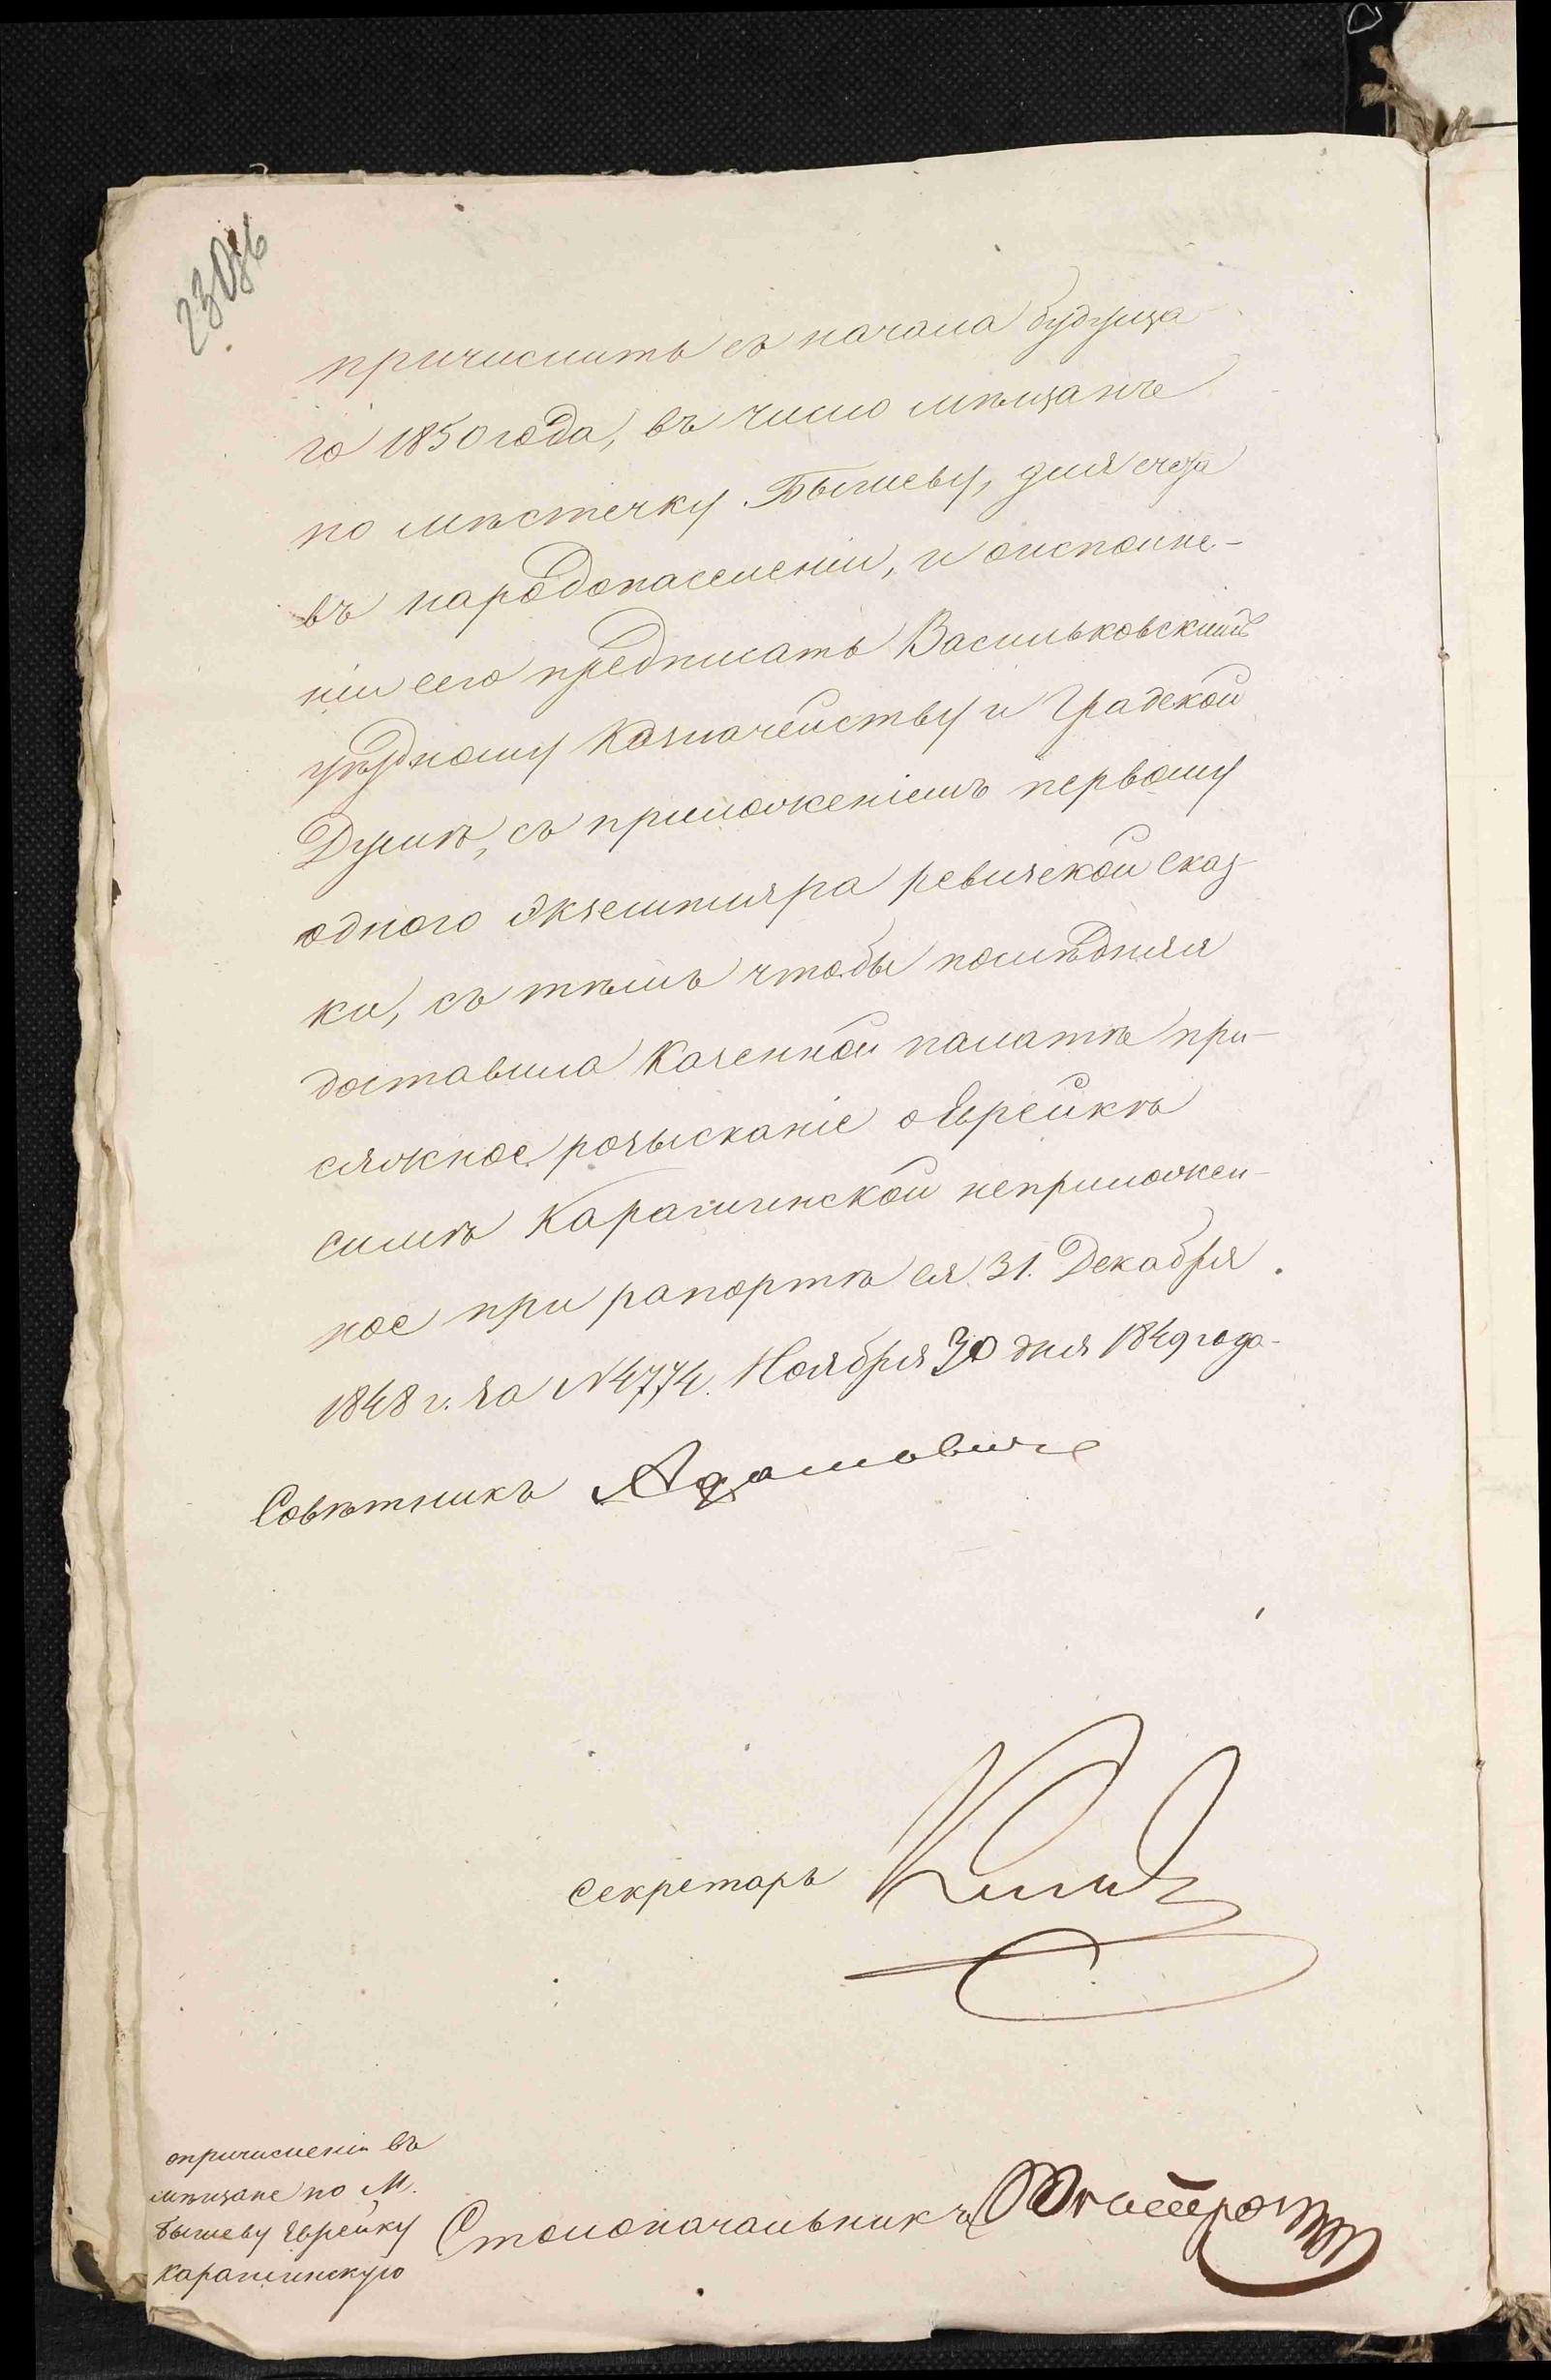 230об
причислить съ начала будуща
го 1850 года, въ число мѣщанъ
по мѣстечку Бышеву, для счета
въ народонаселеніи, и о исполне-
ніи сего предписать Васильковскимъ
уѣздному Казначейству и Градской
Думѣ, съ приложеніемъ первому
одного экземпляра ревизской сказ
ки, съ тѣмъ чтобы послѣдняя
доставила Казенной палатѣ при-
сяжное розысканіе о Еврейкѣ
Симѣ Карашинской неприложен-
ное при рапортѣ ея 31. Декабря
1848 г. за N 4774. Ноября 30 дня 1849 года
Совѣтникъ Адамовичъ
Секретарь
о причисленіи въ
мѣщане по М.
Бышеву Еврейку
Карашинскую
Столоначальникъ